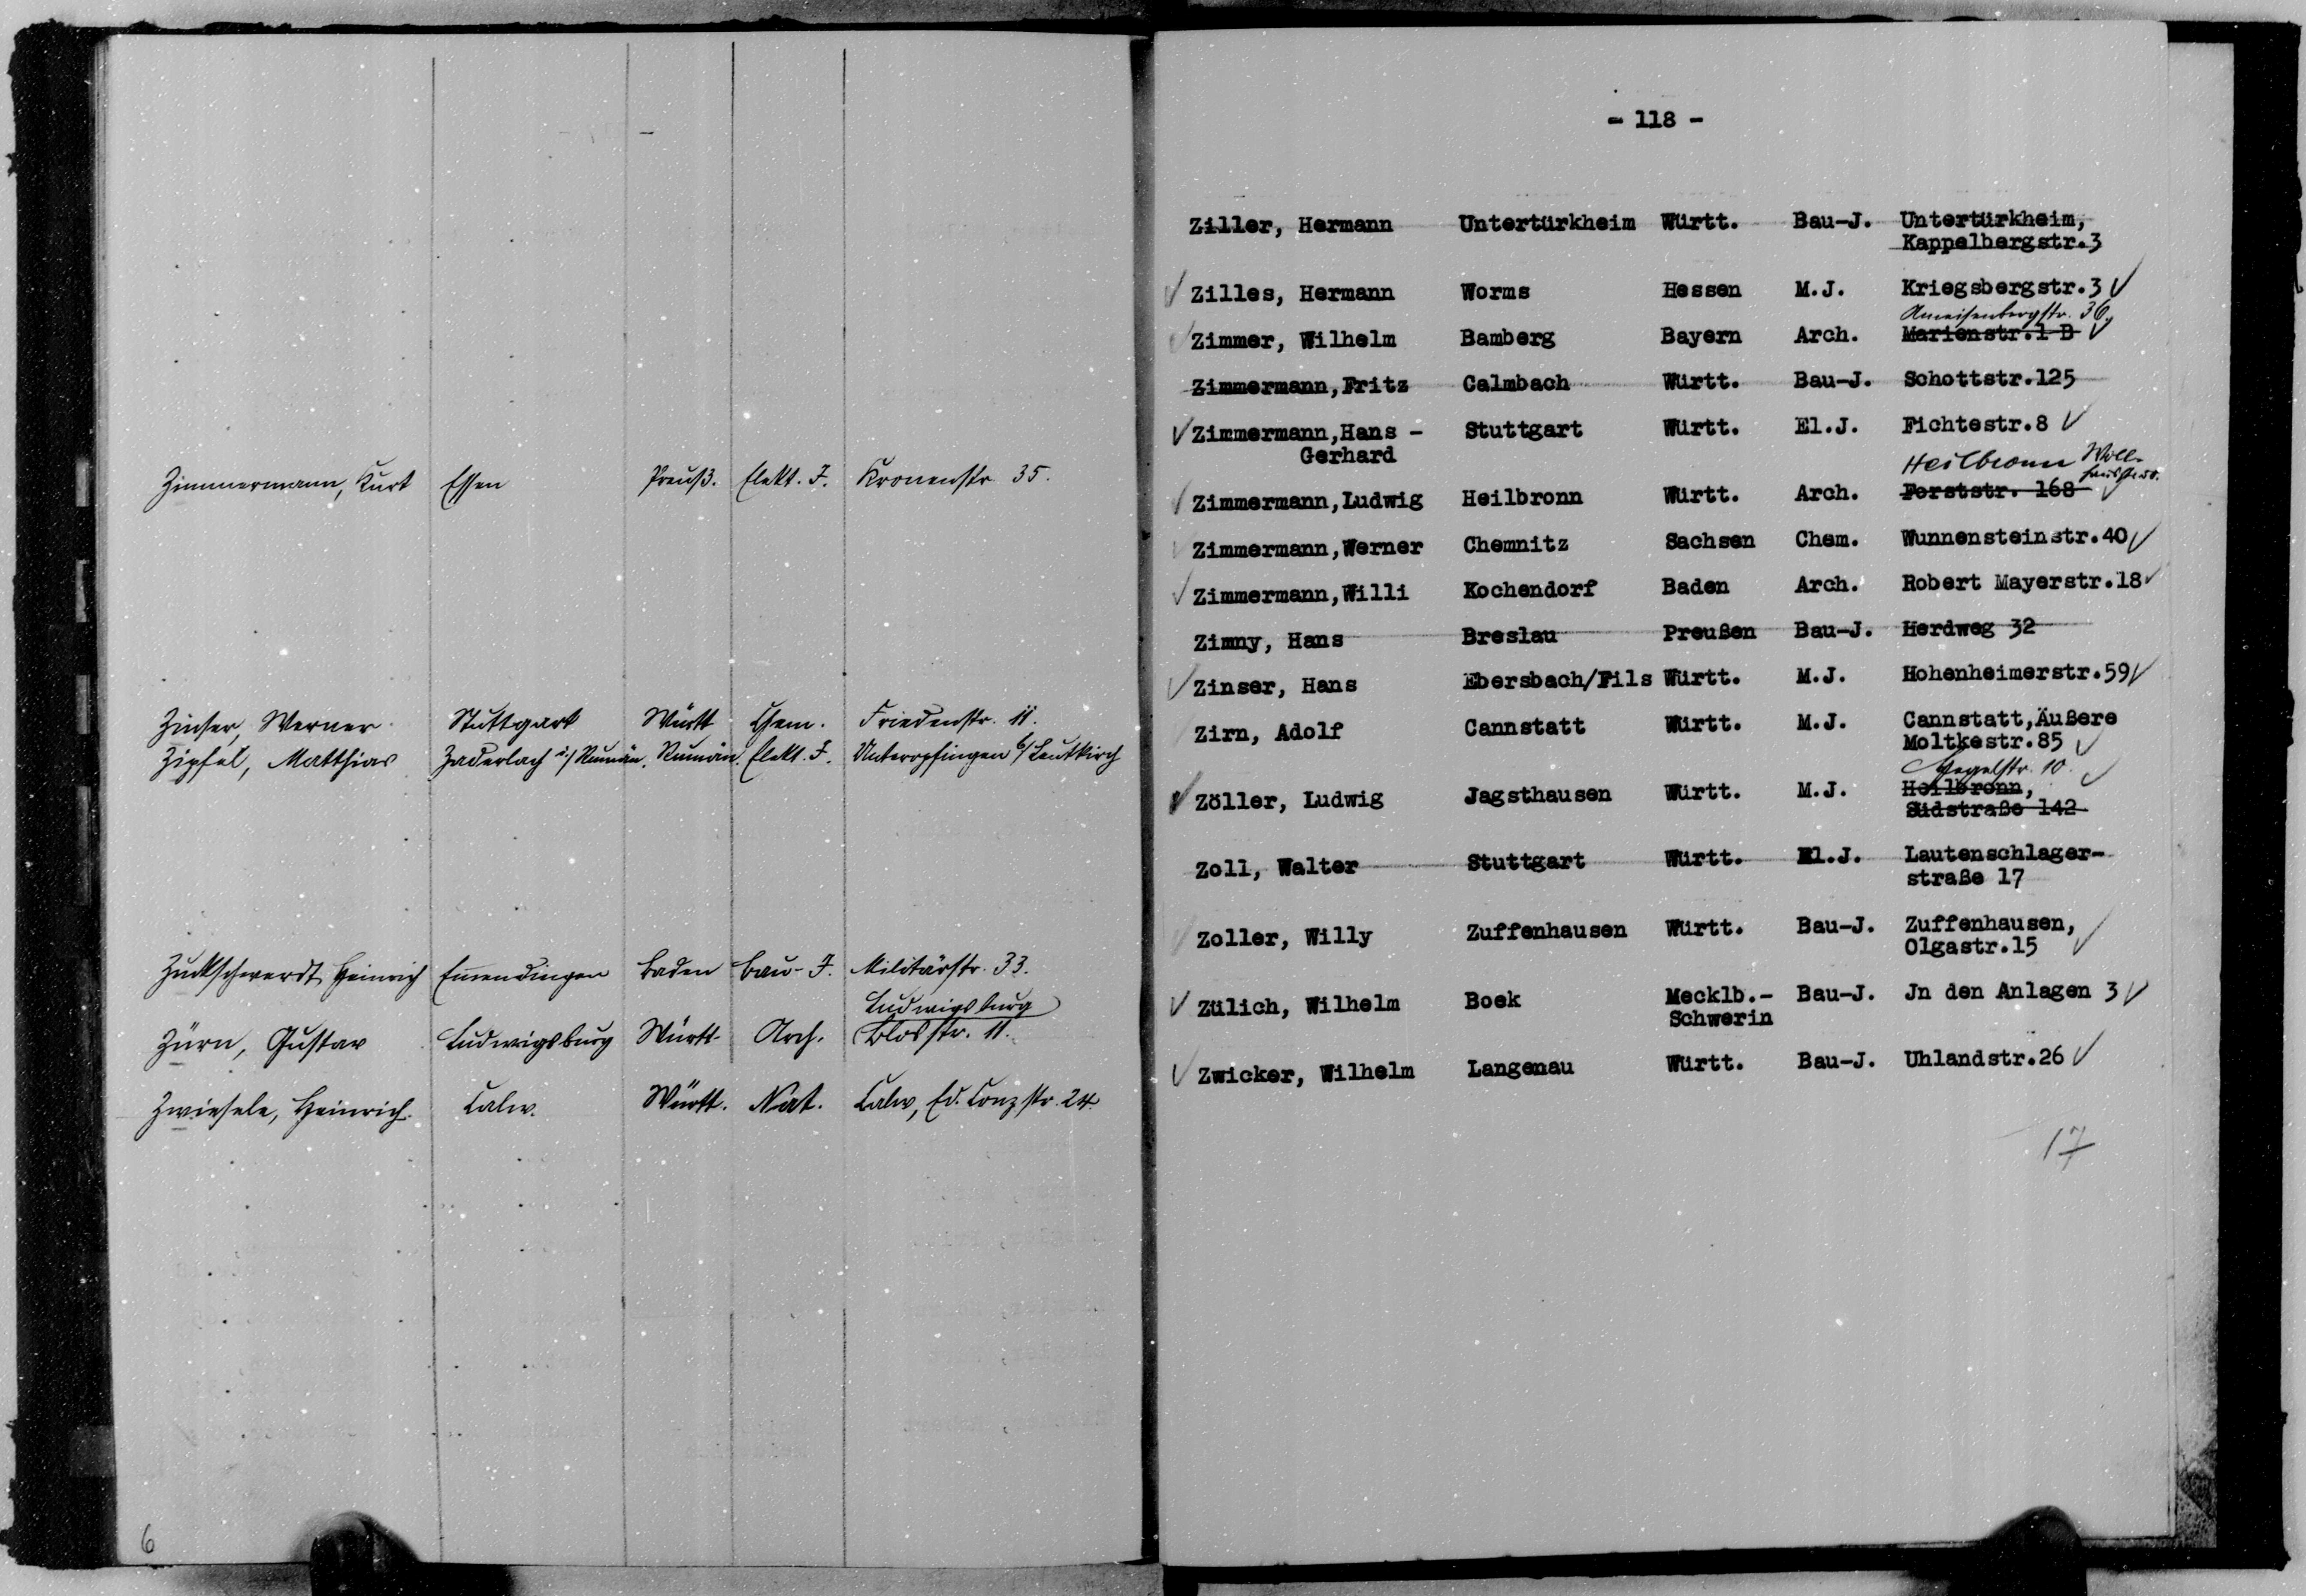 Zimmermann, Kurt Essen Preuß. Elekt. J. Kronenstr. 35.
Zinser, Werner Stuttgart Württ Chem. Friedenstr. 11.
Zipfel, Matthias Zaderlach i/Rumän. Rumän. Elekt. J. Unteropfingen b/Leutkirch
Zuckschwerdt, Heinrich Emendingen Baden Bau-J. Militärstr. 33.
Ludwigsburg
Zürn, Gustav Ludwigsburg Württ. Arch. Blosstr. 11.
Zwiesele, Heinrich. Calw. Württ. Nat. Calw, Ed. Conzstr. 24.
6
- 118 -
Ziller, Hermann Untertürkheim Württ. Bau-J. Untertürkheim,
Kappelbergstr.3
Zilles, Hermann Worms Hessen M.J. Kriegsbergstr.3
Ameisenbergstr. 36.
Zimmer, Wilhelm Bamberg Bayern Arch. Marienstr.1 B
Zimmermann,Fritz Calmbach Württ. Bau-J. Schottstr.125
Zimmermann,Hans - Stuttgart Württ. El.J. Fichtestr.8
Gerhard
Heilbronn
Zimmermann,Ludwig Heilbronn Württ. Arch. Forststr. 168
Zimmermann,Werner Chemnitz Sachsen Chem. Wunnensteinstr.40
Zimmermann,Willi Kochendorf Baden Arch. Robert Mayerstr.18
Zimny, Hans Breslau Preußen Bau-J. Herdweg 32
Zinser, Hans Ebersbach/Fils Württ. M.J. Hohenheimerstr.59
Zirn, Adolf Cannstatt Württ. M.J. Cannstatt,Äußere
Moltkestr.85
Hegelstr. 10.
Zöller, Ludwig Jagsthausen Württ. M.J. Heilbronn,
Südstraße 142
Zoll, Walter Stuttgart Württ. El.J. Lautenschlager-
straße 17
Zoller, Willy Zuffenhausen Württ. Bau-J. Zuffenhausen,
Olgastr.15
Zülich, Wilhelm Boek Mecklb.- Bau-J. Jn den Anlagen 3
Schwerin
Zwicker, Wilhelm Langenau Württ. Bau-J. Uhlandstr.26
17